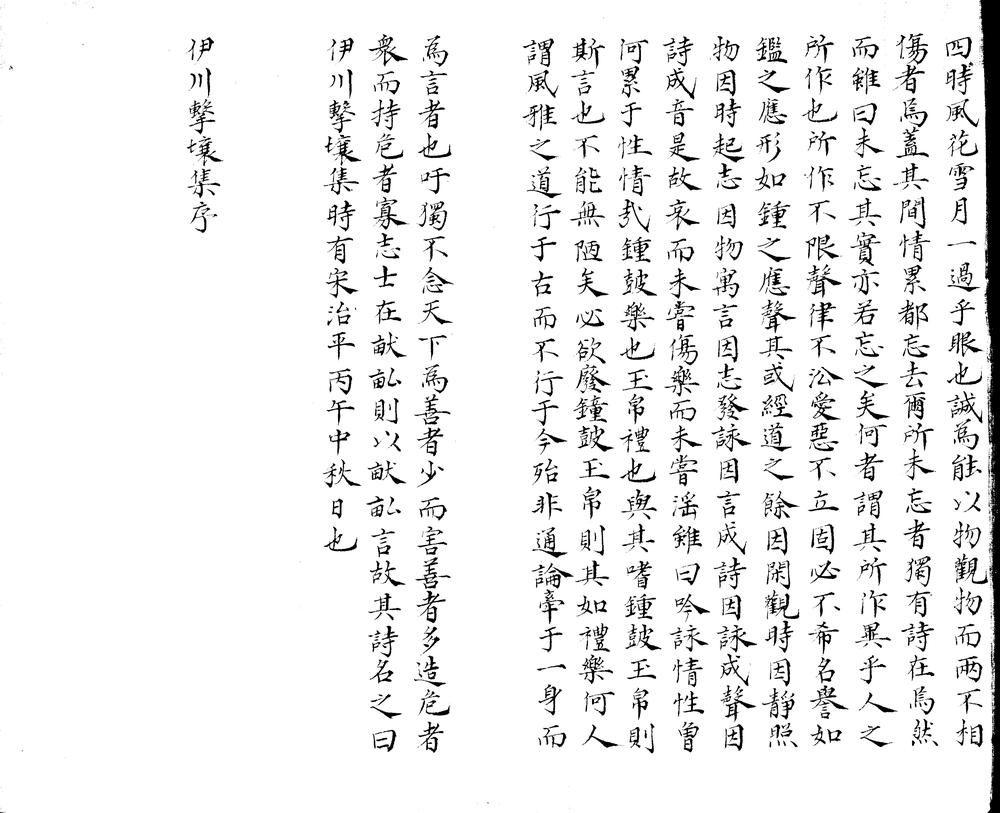 四時風花雪月一過乎眼也誠為能以物觀物而兩不相
傷者焉蓋其間情累都忘去爾所未忘者獨有詩在焉然
而雖曰未忘其實亦若忘之矣何者謂其所作異乎人之
所作也所作不限聲律不㳂愛惡不立固必不希名譽如
鑑之應形如鍾之應聲其或經道之餘因閑觀時因靜照
物因時起志因物寓言因志發詠因言成詩因詠成聲因
詩成音是故哀而未嘗傷樂而未嘗淫雖曰吟詠情性曾
何累于性情㢤鍾皷樂也玉帛禮也與其嗜鍾皷玉帛則
斯言也不能無陋矣必欲廢鐘皷玉帛則其如禮樂何人
謂風雅之道行于古而不行于今殆非通論牽于一身而
為言者也吁獨不念天下為善者少而害善者多造危者
衆而持危者寡志士在畎畝則以畎畝言故其詩名之曰
伊川擊壤集時有宋治平丙午中秋日也
伊川擊壤集序